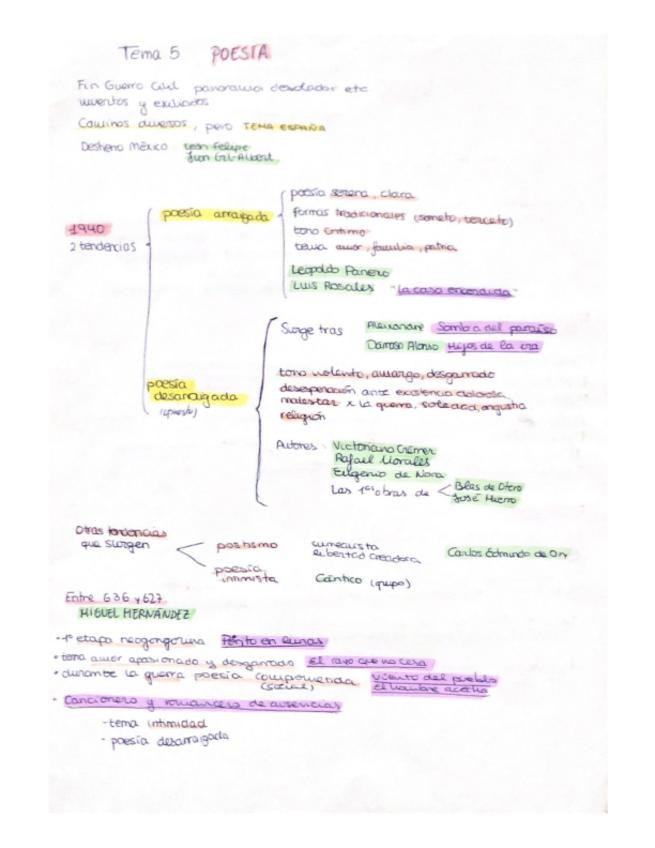 Tema 5 POESIA
Fin Guerra Civil panorama desolador etc
muertos y exiliados
Caminos diversos, pero TEMA ESPAÑA
Destierro México León Felipe
Juan Gil-Albert
1940
2 tendencias
poesía arraigada
poesía serena, clara
formas tradicionales (soneto, terceto)
tono íntimo
tema amor, familia, patria
Leopoldo Panero
Luis Rosales "La casa encendida"
poesía
desarraigada
(opuesto)
Surge tras Aleixandre Sombra del paraíso
Damaso Alonso Hijos de la ira
tono violento, amargo, desgarrado
desesperación ante existencia dolorosa
malestar x la guerra, soledad, angustia
religión
Autores: Victoriano Crémer
Rafael Morales
Eugenio de Nora
Las 1as obras de
Blas de Otero
José Hierro
Otras tendencias
que surgen
postismo
surrealista
libertad creadora
Carlos Edmundo de Ory
poesía
intimista
Cántico (grupo)
Entre G36 y G27
MIGUEL HERNÁNDEZ
- 1ª etapa neogongorina Perito en lunas
• tema amor apasionado y desgarrado El rayo que no cesa
• durante la guerra poesía comprometida Viento del pueblo
(social) El hombre acecha
• Cancionero y romancero de ausencias
- tema intimidad
- poesía desarraigada